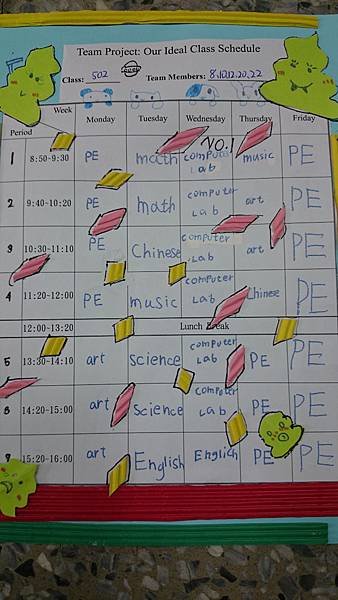 Team Project: Our Ideal Class Schedule
Class: 502 Good Team Members: 8.10.12.20.22
Week
Period Monday Tuesday Wednesday Thursday Friday
NO.1
1 8:50-9:30 PE math computer Lab music PE
2 9:40-10:20 PE math computer Lab art PE
3 10:30-11:10 PE Chinese computer Lab art PE
4 11:20-12:00 PE music computer Lab Chinese PE
12:00-13:20 Lunch Break
5 13:30-14:10 art science computer Lab PE PE
6 14:20-15:00 art science computer Lab PE PE
7 15:20-16:00 art English English PE PE